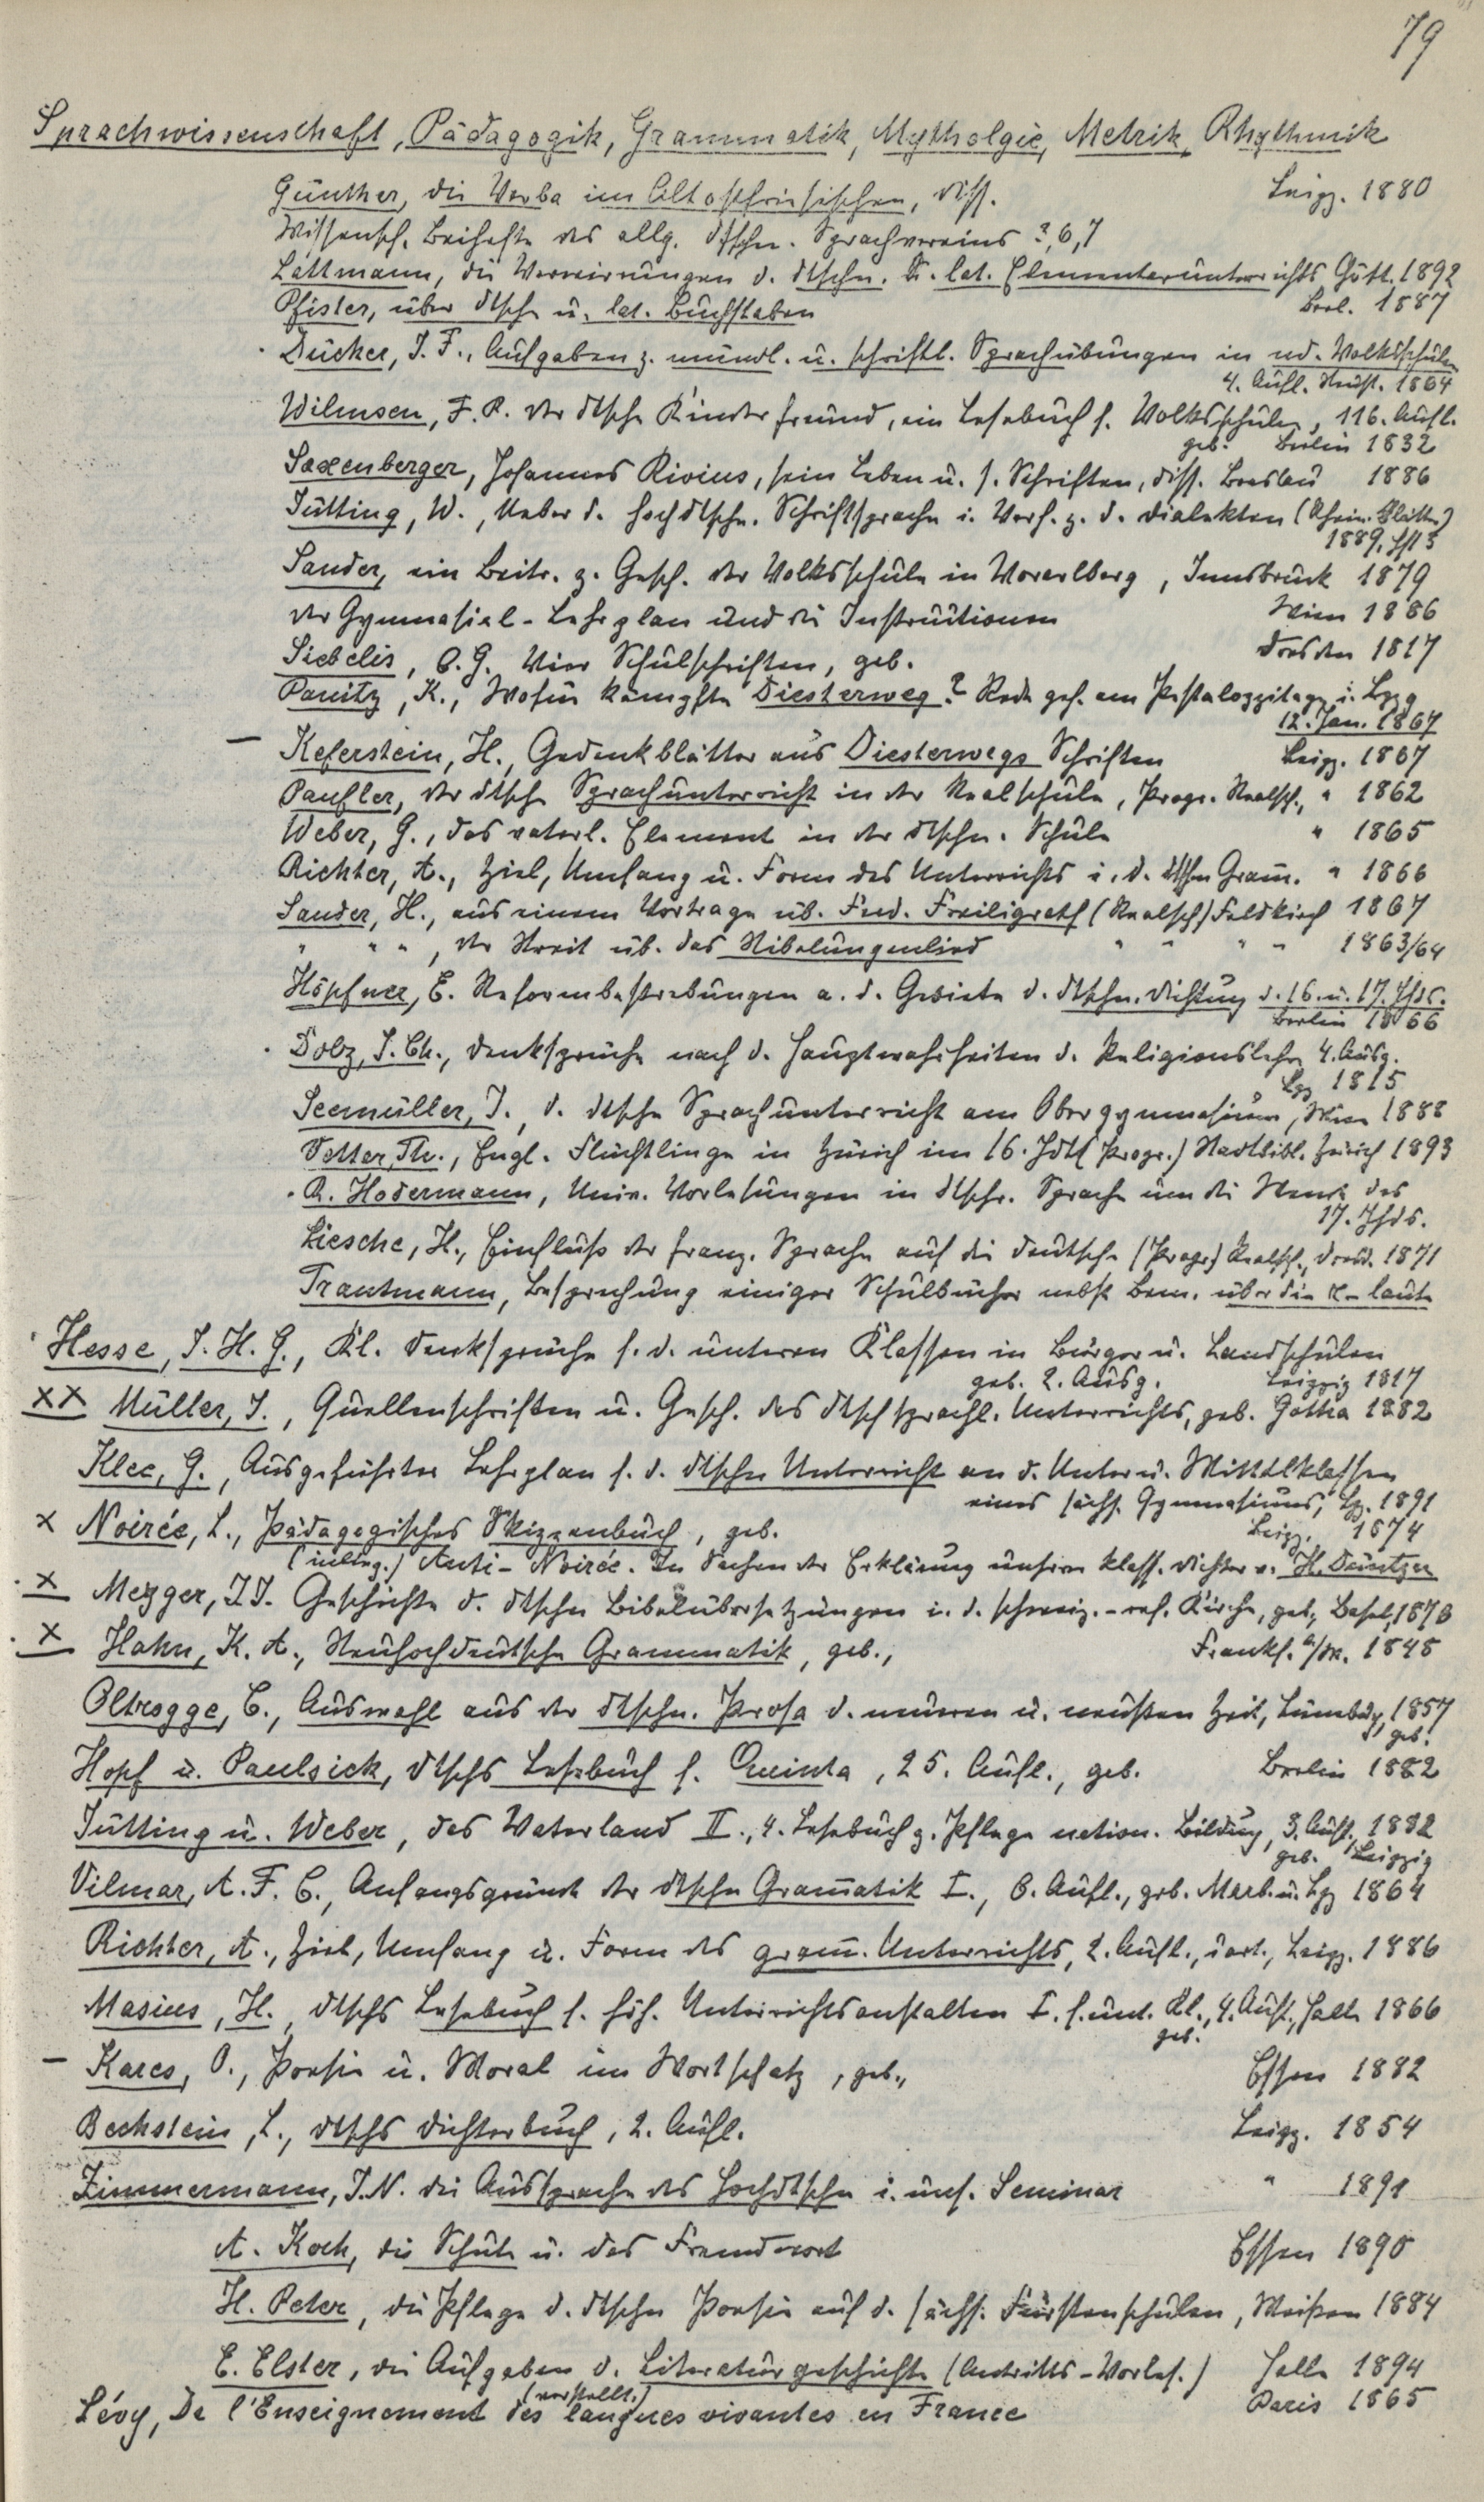 79
Sprachwissenschaft, Pädagogik, Grammatik, Mythologie, Metrik, Rhythmik
Günther, die Verba im Altostfriesischen, Diss. Leipz. 1880
Wissensch. Beihefte des allg. dtschn. Sprachvereins ?, 6, 7
Lattmann, die Verwirrungen d. dtschn. u. lat. Elementarunterrichts Gött. 1892
Pfister, über dtsche u. lat. Buchstaben Berl. 1887
Dücker, J. F., Aufgaben z. mündl. u. schriftl. Sprachübungen in nd. Volksschulen
4. Aufl. 1864
Wilmsen, F. P. der dtsche Kinderfreund, ein Lesebuch f. Volksschulen, 116. Aufl.
geb. Berlin 1832
Saxenberger, Johannes Rivius, sein Leben u. s. Schriften, Diss. Breslau 1886
Jütting, W., Ueber d. hochdtsche. Schriftsprache i. Verh. z. d. Dialekten (Rhein. Blätter)
1889, Hft 3
Sander, ein Beitr. z. Gesch. der Volksschule in Vorarlberg, Innsbruck 1879
der Gymnasial-Lehrplan und die Instruktionen Wien 1886
Siebelis, C. G. Vier Schulschriften, geb. Dresden 1817
Panitz, K., Wofür kämpfte Diesterweg? Rede geh. am Pestalozzitage i. Lpzg
12. Jan. 1867
— Keferstein, H., Gedenkblätter aus Diesterwegs Schriften Leipz. 1867
Paufler, der dtsche Sprachunterricht in der Realschule, Progr. Realsch., " 1862
Weber, G., das vaterl. Element in der dtschn. Schule " 1865
Richter, A., Ziel, Umfang u. Form des Unterrichts i. d. dtschn Gram̄. " 1866
Sander, H., aus einem Vortrage üb. Ferd. Freiligrath (Realsch) Feldkirch 1867
" " " , der Streit üb. das Nibelungenlied " " " " 1863/64
Höpfner, E. Reformbestrebungen a. d. Gebiete d. dtschn. Dichtung d. 16. u. 17. Jhds.
Berlin 1866
Dolz, J. Ch., Denksprüche nach d. Hauptwahrheiten d. Religionslehre 4. Ausg.
Lpz 1815
Seemüller, J., d. dtsche Sprachunterricht am Obergymnasium, Wien 1888
Vetter, Th., Engl. Flüchtlinge in Zürich im 16. Jdt (Progr.) Stadtbibl. Zürich 1893
R. Hodermann, Univ. Vorlesungen in dtschr. Sprache um die Wende des
17. Jhds.
Liesche, H., Einfluss der franz. Sprache auf die deutsche (Progr.) Realsch., Dresd. 1871
Trautmann, Besprechung einiger Schulbücher nebst Bem. über die r-laute
Hesse, J. H. G., Kl. Denksprüche f. d. unteren Klassen in Bürger u. Landschulen
geb. 2. Ausg. Leipzig 1817
XX Müller, J., Quellenschriften u. Gesch. des dtschsprachl. Unterrichts, geb. Gotha 1882
Klee, G., Ausgeführter Lehrplan f. d. dtschn Unterricht an d. Unter u. Mittelklassen
eines sächs. Gymnasiums, Lpz. 1891
X Noirée, L., Pädagogisches Skizzenbuch, geb. Leipz. 1874
(inlieg.) Anti-Noirée. In Sachen der Erklärung unserer klass. Dichter v. H. Düntzer
X Mezger, J. J. Geschichte d. dtschn Bibelübersetzungen i. d. schweiz.-ref. Kirche, geb., Basel, 1876
X Hahn, K. A., Neuhochdeutsche Grammatik, geb., Frankf. a/M. 1848
Oltrogge, C., Auswahl aus der dtschn. Prosa d. neueren u. neusten Zeit, Lüneburg, 1857
geb.
Hopf u. Paulsiek, dtschs Lesebuch f. Quinta, 25. Aufl., geb. Berlin 1882
Jütting u. Weber, das Vaterland II., 4. Lesebuch z. Pflege nation. Bildung, 3. Aufl., 1882
geb. Leipzig
Vilmar, A. F. C., Anfangsgründe der dtschn Gram̄atik I., 6. Aufl., geb. Marb. u. Lpz 1864
Richter, A., Ziel, Umfang u. Form des gram̄. Unterrichts, 2. Aufl., Leipz. 1886
Masius, H., dtschs Lesebuch f. höh. Unterrichtsanstalten I. f. unt. Kl., 4. Aufl., Halle 1866
geb.
— Kares, O., Poesie u. Moral im Wortschatz, geb., Essen 1882
Bechstein, L., dtschs Dichterbuch, 2. Aufl. Leipz. 1854
Zimmermann, J. N. die Aussprache des Hochdtschn i. uns. Seminar " 1891
A. Koch, die Schule u. das Fremdwort Essen 1890
H. Peter, die Pflege d. dtschn Poesie auf d. sächs. Fürstenschulen, Meißen 1884
E. Elster, die Aufgaben d. Literaturgeschichte (Antritts-Vorles.) Halle 1894
(verstellt.)
Lévy, De l'Enseignement des langues vivantes en France Paris 1865